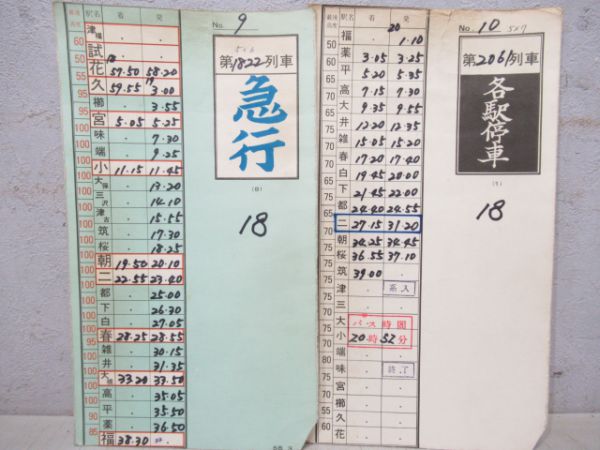 最徐 駅名 着 発
No. 9
第1822列車
急行
(日)
18
津福 . .
60 試 . .
60 花 18 57.50 58.20
90 久 59.55 19 3.00
95 櫛 . 3.55
90 宮 5.05 5.25
100 味 . 7.30
端 . 9.25
小 11.15 11.45
大保 . 13.20
三沢 . 14.10
津古 . 15.15
筑 . 17.30
桜 . 18.25
朝 19.50 20.10
二 22.55 23.40
都 . 25.00
下 . 26.30
白 . 27.05
春 28.25 28.55
雑 . 30.15
井 . 31.35
大橋 33.20 33.50
高 . 35.05
平 . 35.50
薬 . 36.50
85 福 38.30
駅名 着 発
No. 10
527
第2061列車
各駅停車
(1)
18
福 . 20 1.10
薬 3.05 3.25
平 5.20 5.35
高 7.15 7.30
大 9.35 9.55
井 12.20 12.35
雑 15.05 15.20
春 17.20 17.40
白 19.45 20.00
下 21.45 22.00
都 24.40 24.55
二 27.15 31.20
朝 34.25 34.45
桜 36.55 37.10
筑 39.00
津 . 高入
三 . .
大 バス時間
小 20時52分
端 . .
味 . 終了
宮 . .
櫛 . .
久 . .
花 . .